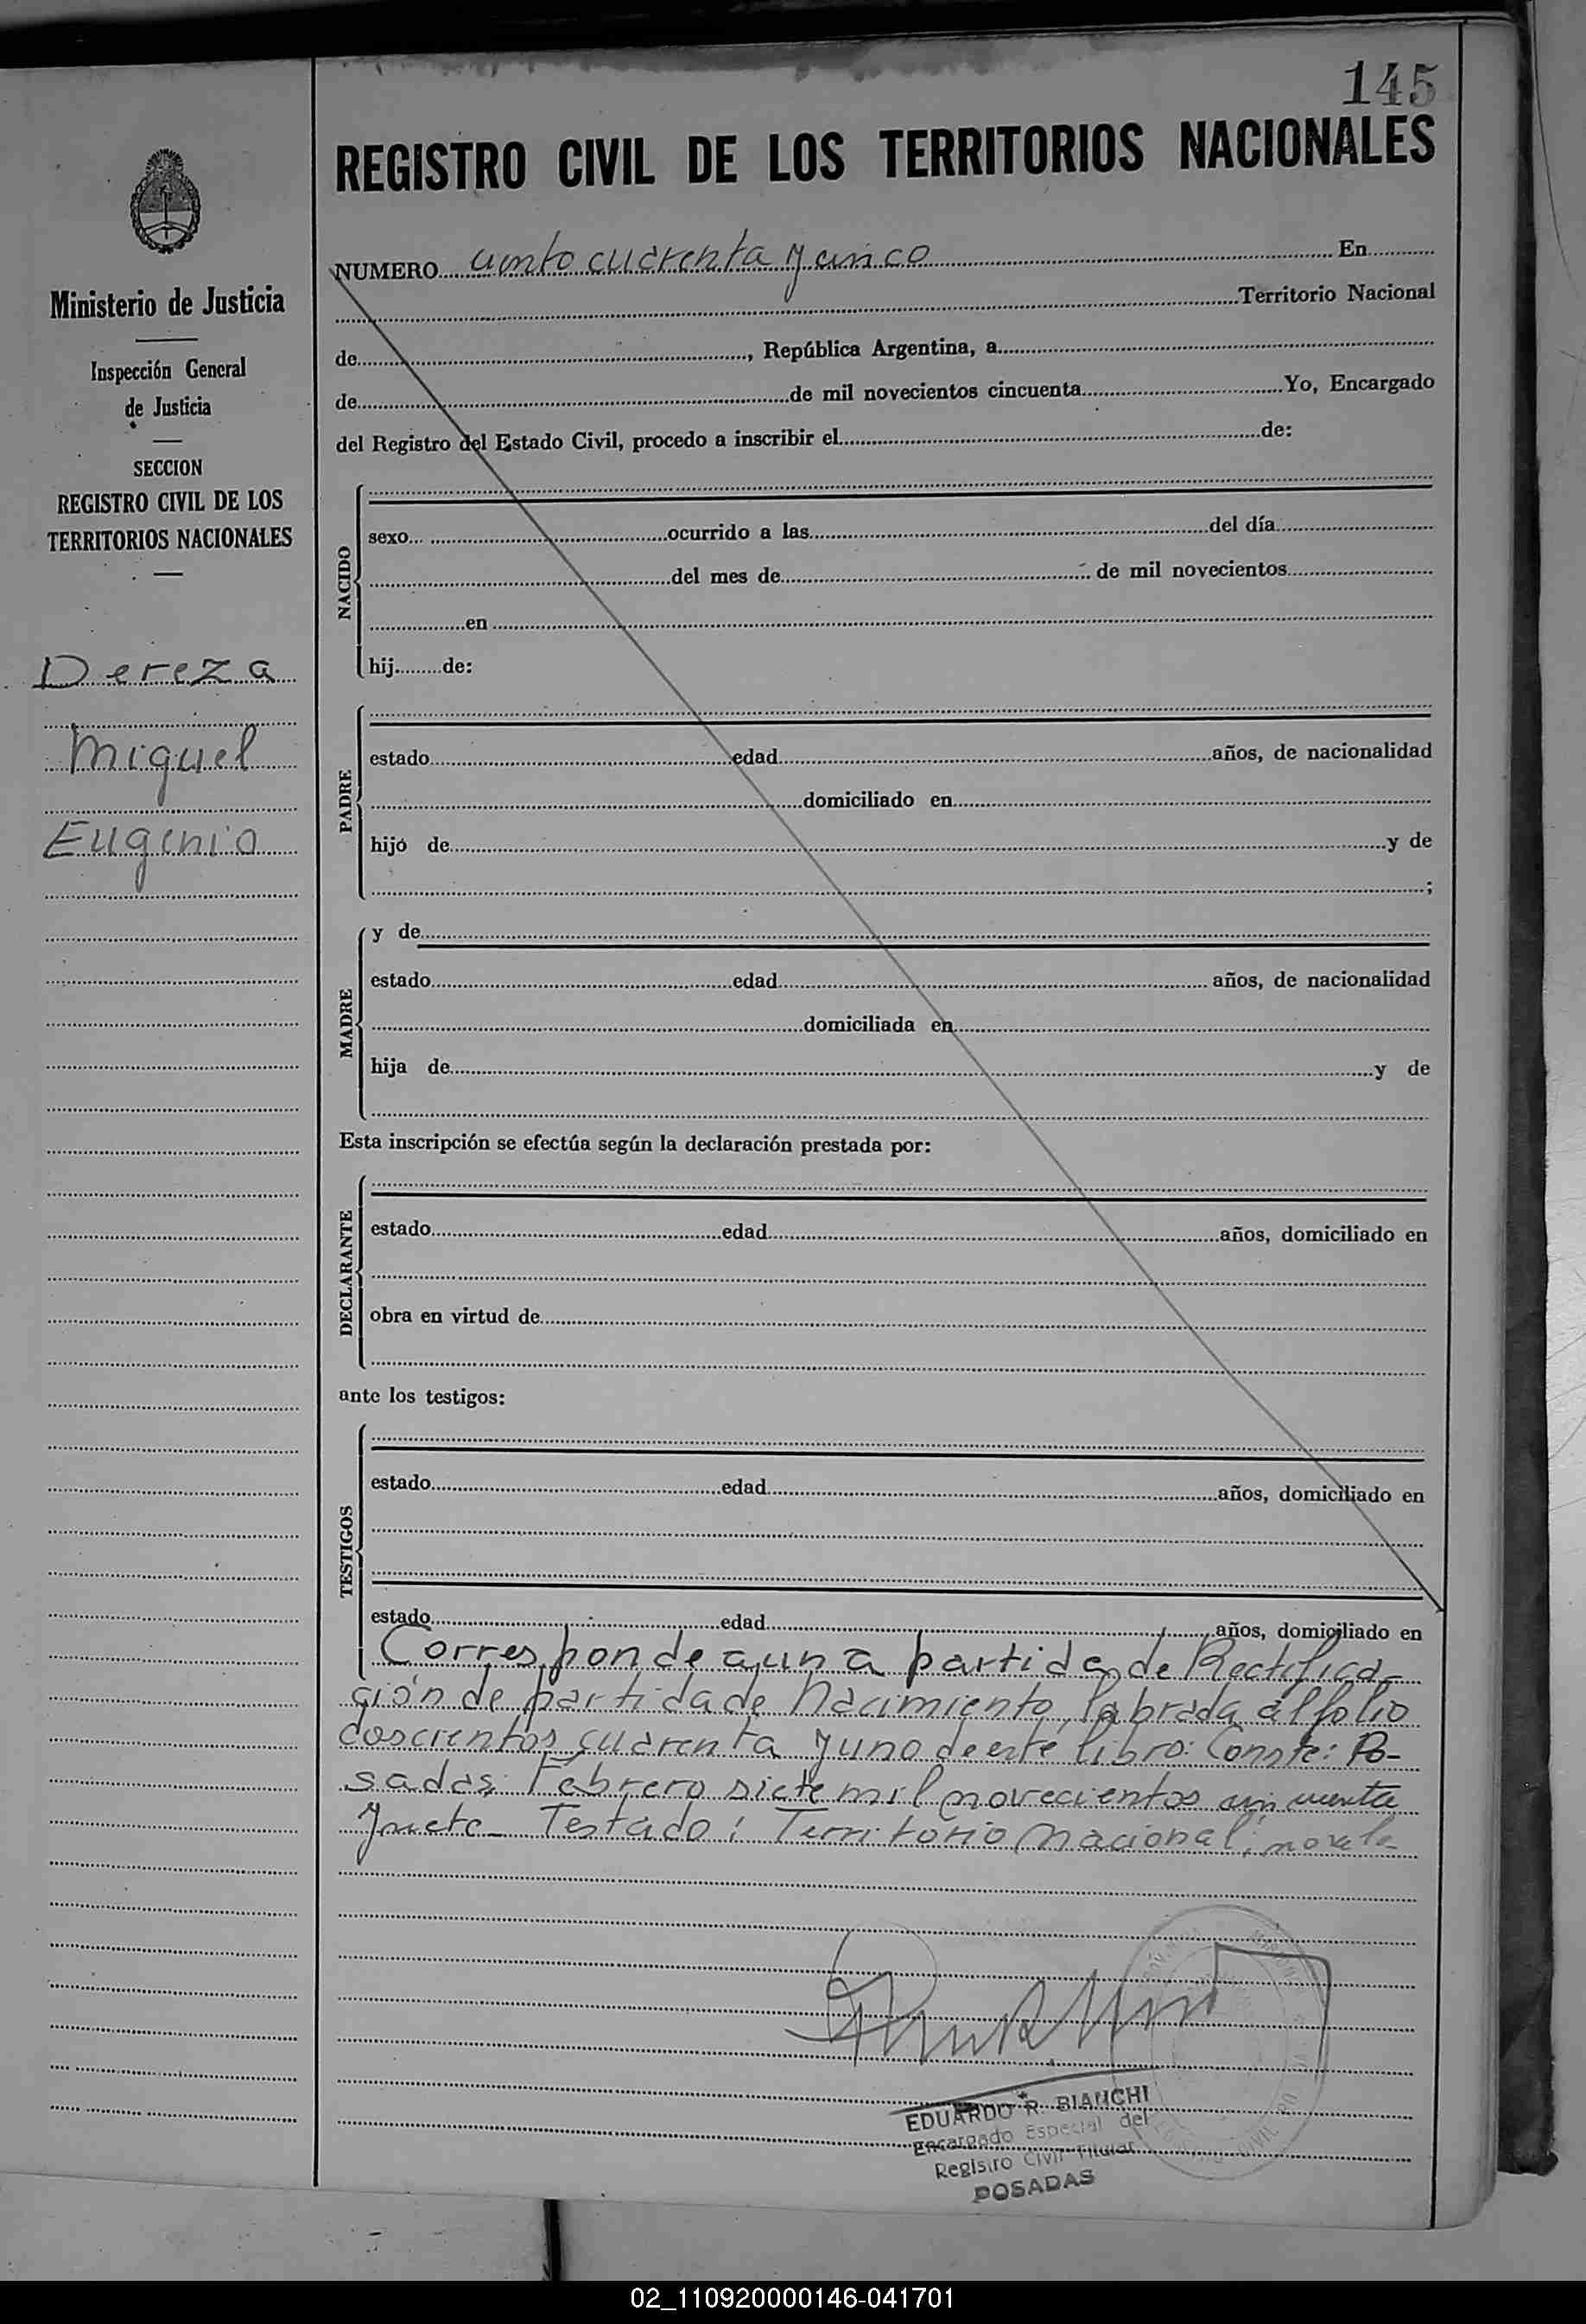 145
REGISTRO CIVIL DE LOS TERRITORIOS NACIONALES
Ministerio de Justicia
Inspección General
de Justicia
SECCION
REGISTRO CIVIL DE LOS
TERRITORIOS NACIONALES
Dereza
Miguel
Eugenio
NUMERO ciento cuarenta y cinco En
Territorio Nacional
de, República Argentina, a
de de mil novecientos cincuenta Yo, Encargado
del Registro del Estado Civil, procedo a inscribir el de:
NACIDO
sexo ocurrido a las del día
del mes de de mil novecientos
en
hij de:
PADRE
estado edad años, de nacionalidad
domiciliado en
hijo de y de
;
MADRE
y de
estado edad años, de nacionalidad
domiciliada en
hija de y de
Esta inscripción se efectúa según la declaración prestada por:
DECLARANTE
estado edad años, domiciliado en
obra en virtud de
ante los testigos:
TESTIGOS
estado edad años, domiciliado en
estado edad años, domiciliado en
Corresponde a una partida de Rectifica-
ción de partida de Nacimiento, labrada al folio
doscientos cuarenta y uno de este libro: Conste: Po-
sadas, Febrero siete mil novecientos cincuenta
y siete - Testado: Territorio Nacional; no vale
EDUARDO R. BIANCHI
Encargado Especial del
Registro Civil Titular
POSADAS
02_110920000146-041701